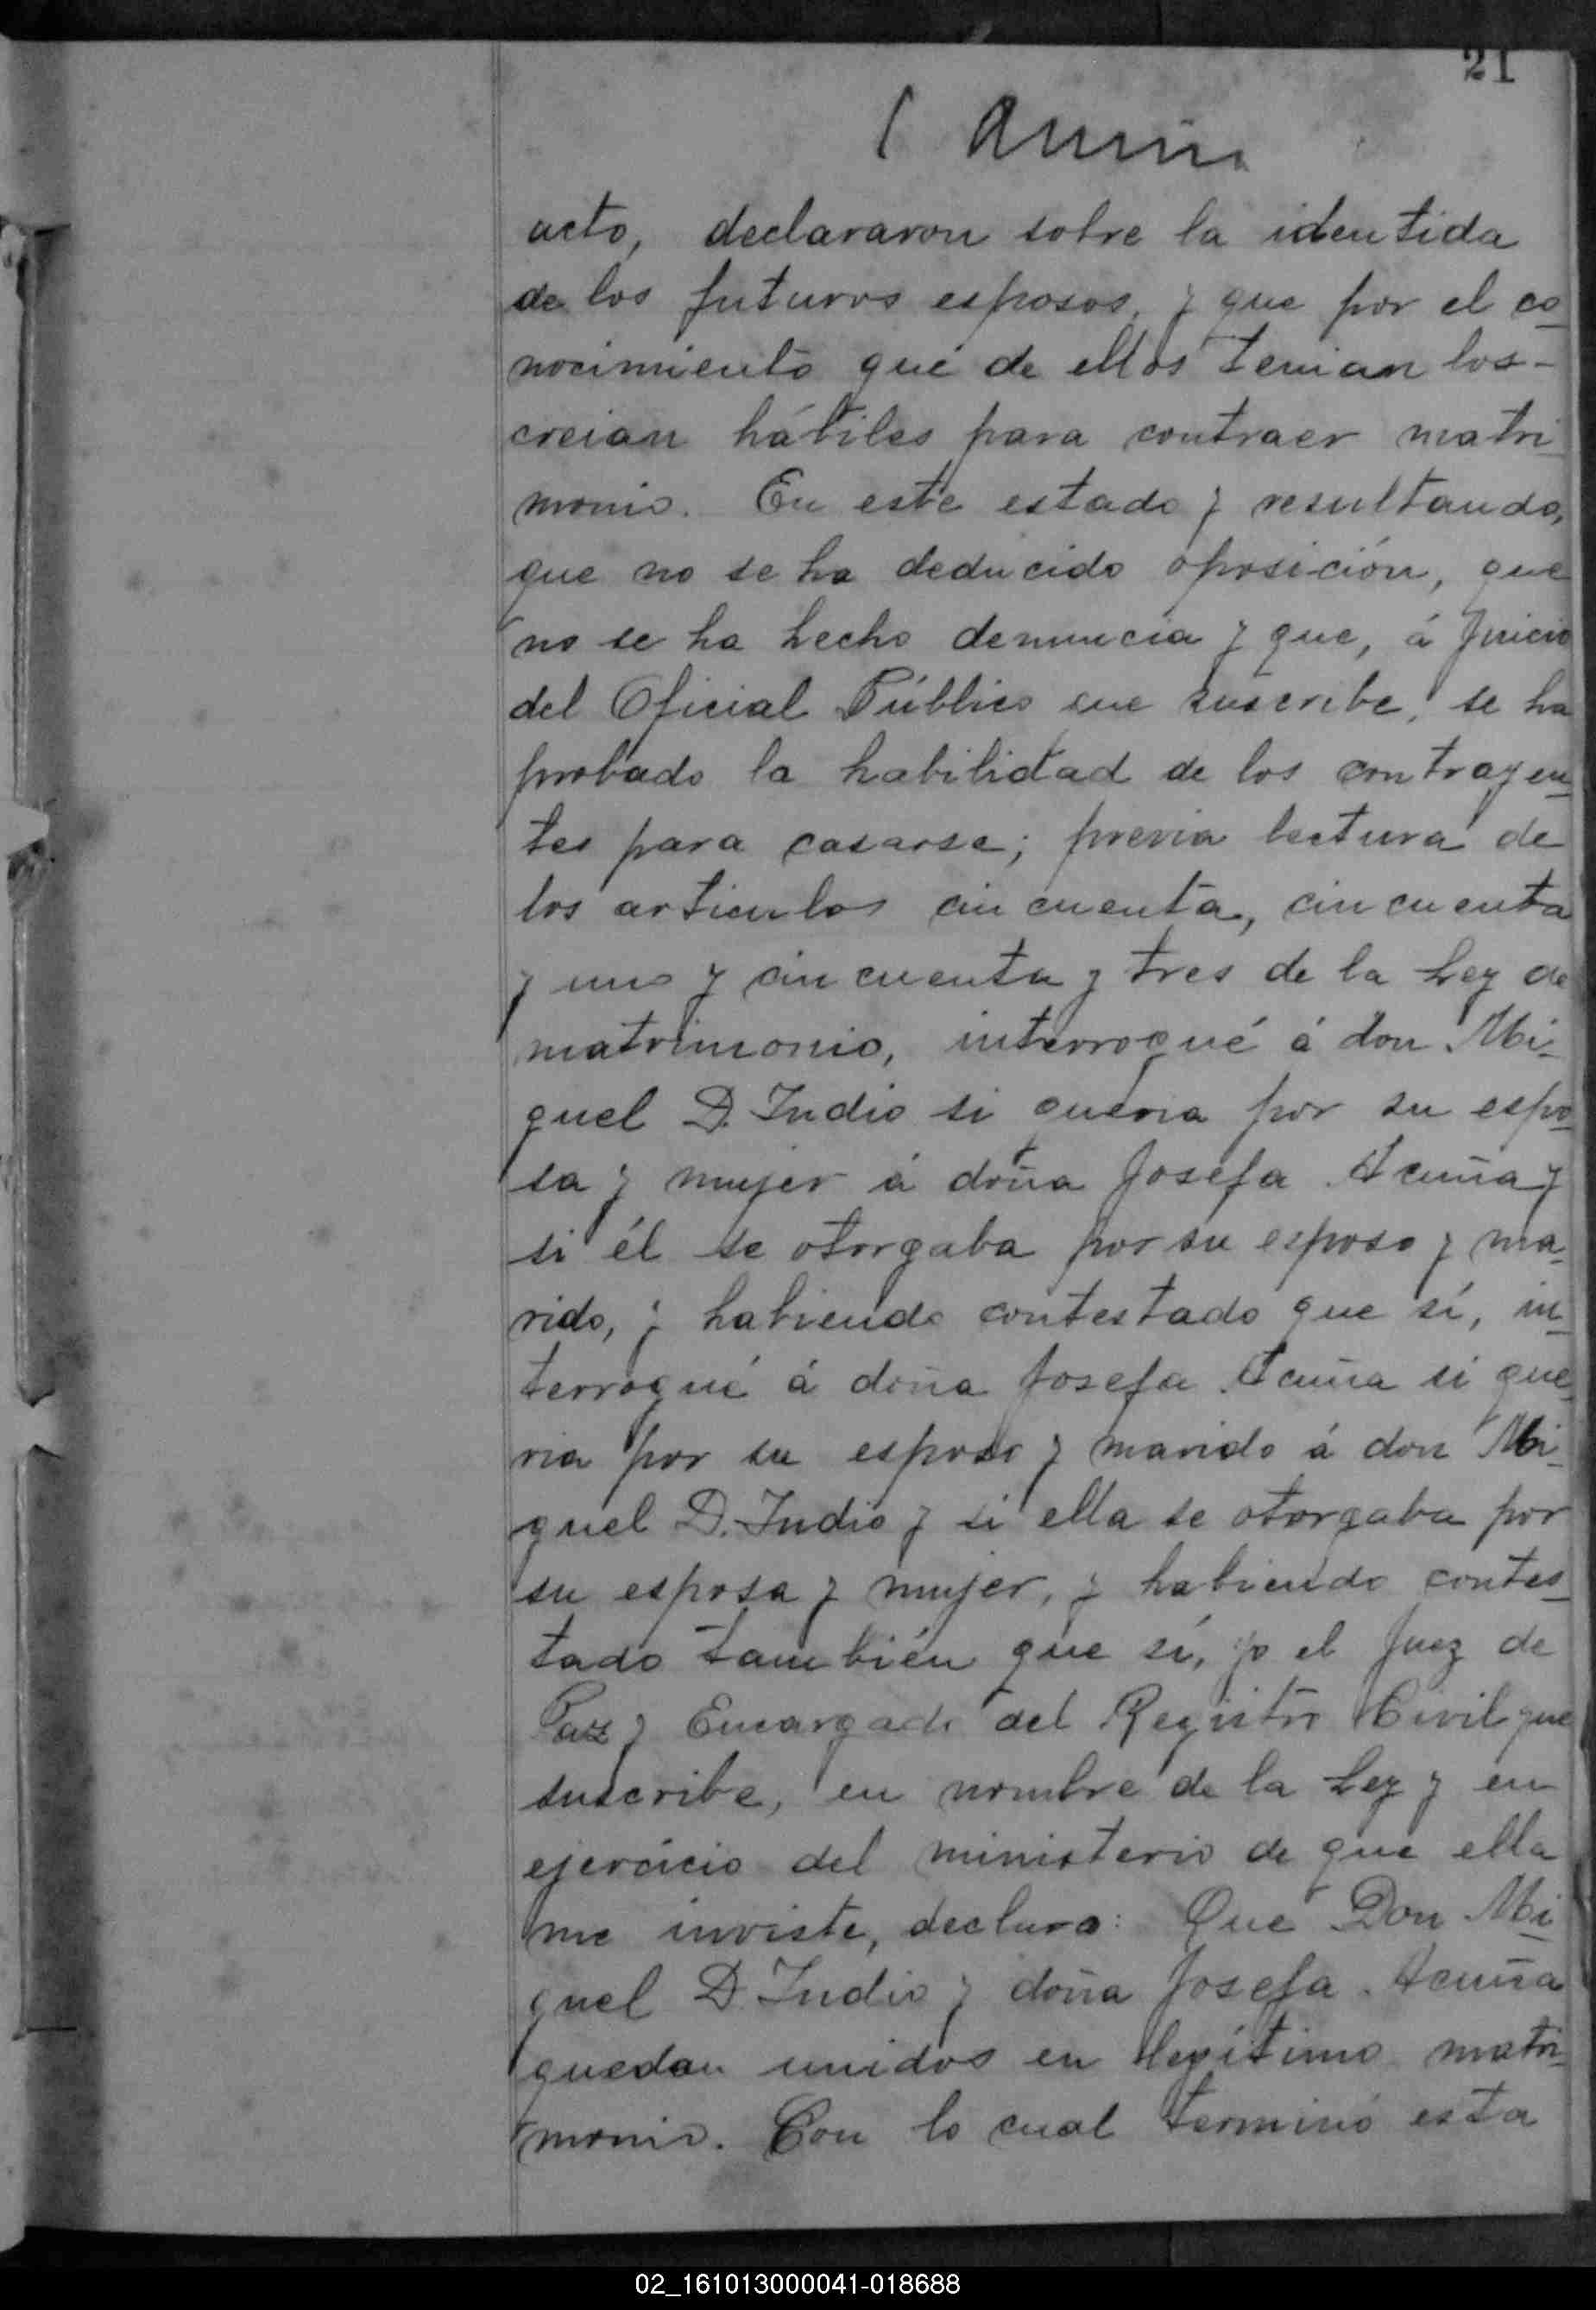 21
acto, declararon sobre la identida
de los futuros esposos, y que por el co
nocimiento que de ellos tenian los-
creian hábiles para contraer matri
monio. En este estado y resultando,
que no se ha deducido oposición, que
no se ha hecho denuncia y que, á juicio
del Oficial Público que suscribe, se ha
probado la habilidad de los contrayen
tes para casarse; previa lectura de
los articulos cincuenta, cincuenta
y uno y cincuenta y tres de la Ley de
matrimonio, interrogué á don Mi-
guel D. Indio si queria por su espo
sa y mujer á doña Josefa Acuña y
si él se otorgaba por su esposo y ma-
rido, y habiendo contestado que sí, in
terrogué á doña Josefa Acuña si que
ria por su esposo y marido á don Mi-
guel D. Indio y si ella se otorgaba por
su esposa y mujer, y habiendo contes
tado también que sí, yo el Juez de
Paz y Encargado del Registro Civil que
suscribe, en nombre de la Ley y en
ejercicio del ministerio de que ella
me inviste, declaro: Que Don Mi
guel D. Indio y doña Josefa Acuña
quedan unidos en legítimo matri-
monio. Con lo cual terminó esta
02_161013000041-018688